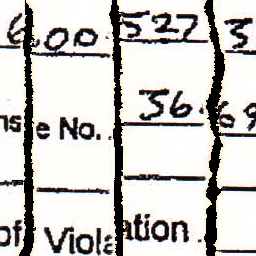 6.00 527 3
ns e No. 36.69
of Violation